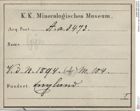 K. K. Mineralogisches Museum.
Acq. Post A.a. 3473.
Name
K. d. N. 1894. M. 104.
Fundort England